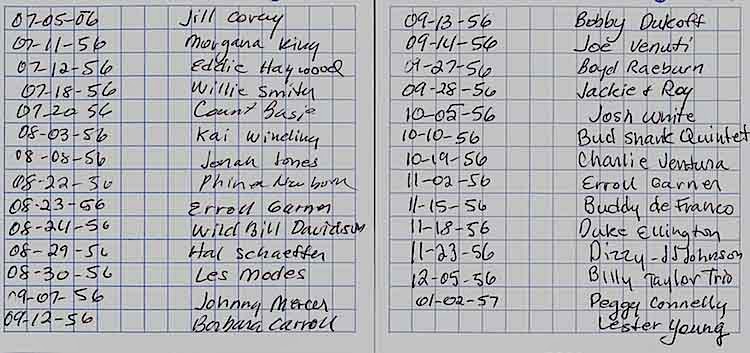 07-05-56 Jill Corey
07-11-56 Morgana King
07-12-56 Eddie Haywood
07-18-56 Willie Smith
07-20 56 Count Basie
08-03-56 Kai Winding
08-08-56 Jonah Jones
08-22-56 Phineas Newborn
08-23-56 Erroll Garner
08-24-56 Wild Bill Davidson
08-29-56 Hal Schaeffer
08-30-56 Les Modes
09-07-56 Johnny Mercer
09-12-56 Barbara Carroll
09-13-56 Bobby Dukoff
09-14-56 Joe Venuti
09-27-56 Boyd Raeburn
09-28-56 Jackie & Roy
10-05-56 Josh White
10-10-56 Bud Shank Quintet
10-19-56 Charlie Ventura
11-02-56 Erroll Garner
11-15-56 Buddy de Franco
11-18-56 Duke Ellington
11-23-56 Dizzy - JJ Johnson
12-05-56 Billy Taylor Trio
01-02-57 Peggy Connelly
Lester Young